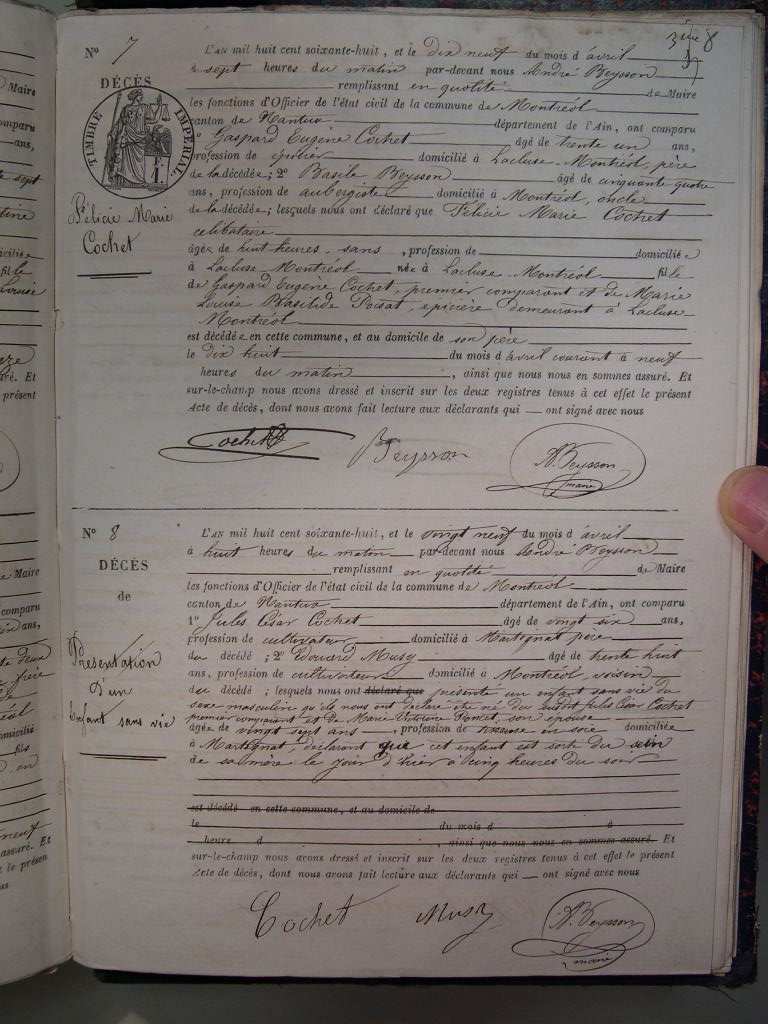 3ème 8
N° 7
DÉCÈS
TIMBRE IMPÉRIAL
1 F.
Félicie Marie
Cochet
L'AN mil huit cent soixante-huit, et le dix neuf du mois d'avril
à sept heures du matin par-devant nous André Beysson
remplissant en qualité de Maire
les fonctions d'Officier de l'état civil de la commune de Montréal
canton de Nantua département de l'Ain, ont comparu
1° Gaspard Eugène Cochet âgé de trente un ans,
profession de épicier domicilié à Lacluse-Montréal, père
de la décédée; 2° Basile Beysson âgé de cinquante quatre
ans, profession de aubergiste domicilié à Montréal, oncle
de la décédée; lesquels nous ont déclaré que Félicie Marie Cochet
célibataire
âgée de huit heures - sans, profession de domiciliée
à Lacluse Montréal née à Lacluse Montréal fille
de Gaspard Eugène Cochet, premier comparant et de Marie
Louise Basilide, épicière demeurant à Lacluse
Montréal
est décédée en cette commune, et au domicile de son père
le dix huit du mois d'avril courant à neuf
heures du matin, ainsi que nous nous en sommes assuré. Et
sur-le-champ nous avons dressé et inscrit sur les deux registres tenus à cet effet le présent
Acte de décès, dont nous avons fait lecture aux déclarants qui — ont signé avec nous
Cochet Beysson A. Beysson
maire
N° 8
DÉCÈS
de
Présentation
d'un
enfant sans vie
L'AN mil huit cent soixante-huit, et le vingt neuf du mois d'avril
à huit heures du matin par-devant nous André Beysson
remplissant en qualité de Maire
les fonctions d'Officier de l'état civil de la commune de Montréal
canton de Nantua département de l'Ain, ont comparu
1° Jules César Cochet âgé de vingt six ans,
profession de cultivateur domicilié à Martignat père
du décédé; 2° Edouard Musy âgé de trente huit
ans, profession de cultivateur domicilié à Montréal, voisin
du décédé; lesquels nous ont déclaré que présenté un enfant sans vie du
sexe masculin qu'ils nous ont déclaré être né du César Cochet
premier comparant et de Marie Victoire Poncet, son épouse
âgée de vingt sept ans, profession de domiciliée
à Martignat déclarant que cet enfant est sorti du sein
de sa mère le jour d'hier à cinq heures du soir
est décédé en cette commune, et au domicile de
le du mois d à
heure d, ainsi que nous nous en sommes assuré. Et
sur-le-champ nous avons dressé et inscrit sur les deux registres tenus à cet effet le présent
Acte de décès, dont nous avons fait lecture aux déclarants qui — ont signé avec nous
Cochet Musy A. Beysson
maire